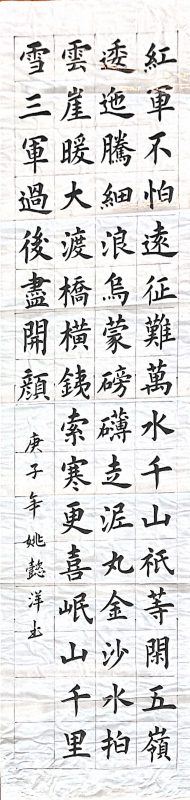 紅軍不怕遠征難萬水千山祇等閑五嶺
逶迤騰細浪烏蒙磅礴走泥丸金沙水拍
雲崖暖大渡橋橫銕索寒更喜岷山千里
雪三軍過後盡開顏
庚子年姚懿洋书